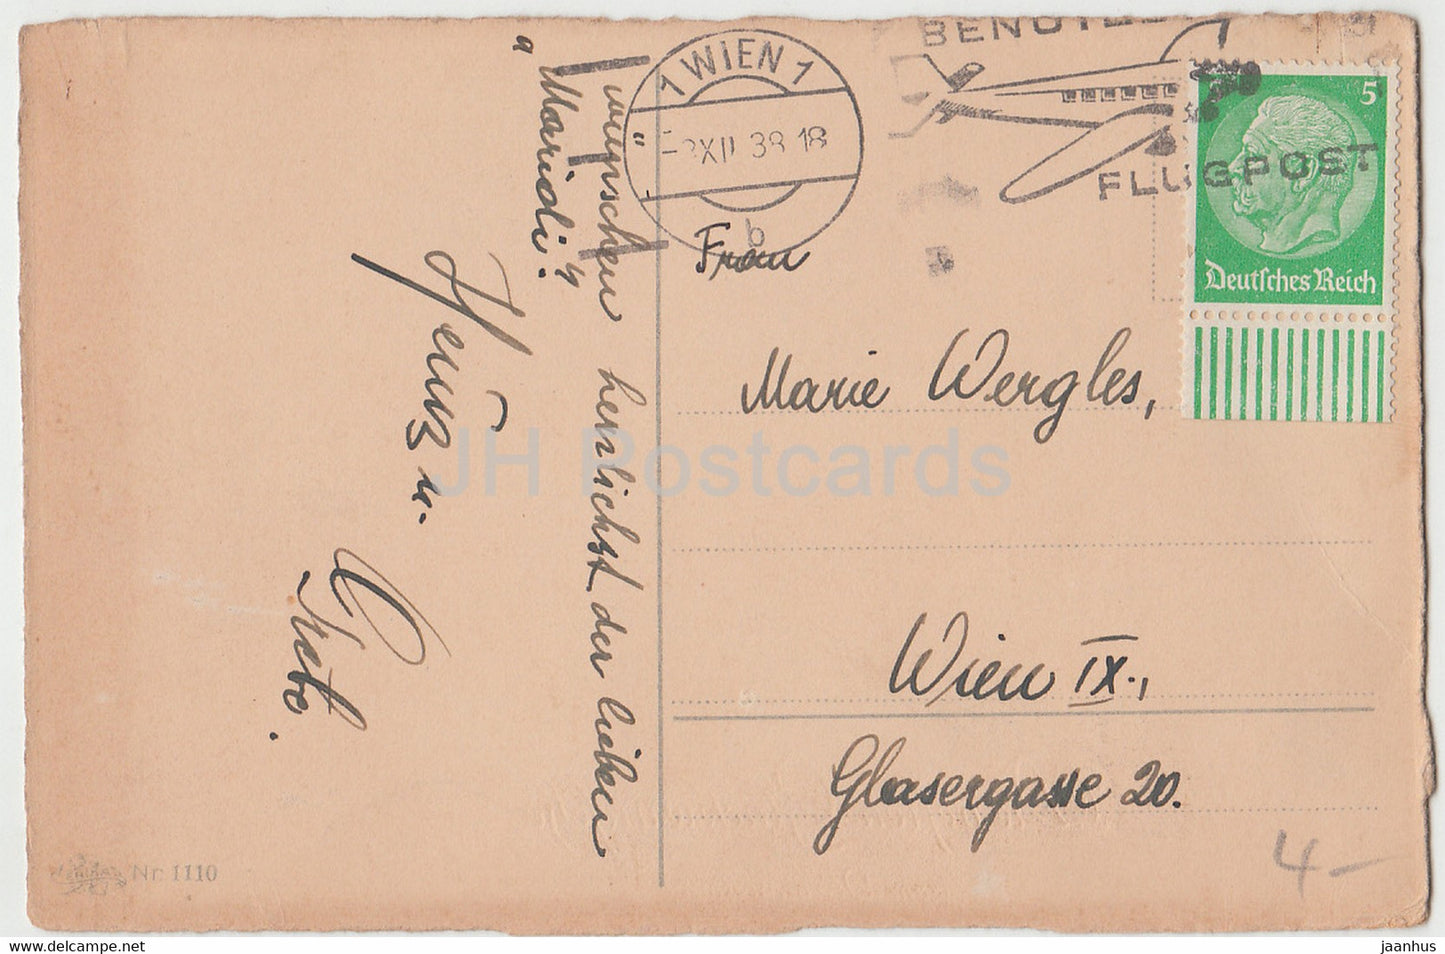 wünschen herzlichst der lieben
"Maridi".
Heinz u.
1 WIEN 1
XII 38 18
b
FLUGPOST
5
Deutsches Reich
Frau
Marie Wergles,
Wien IX.,
Glasergasse 20.
4-
Nr. 1110
JH Postcards
jaanhus